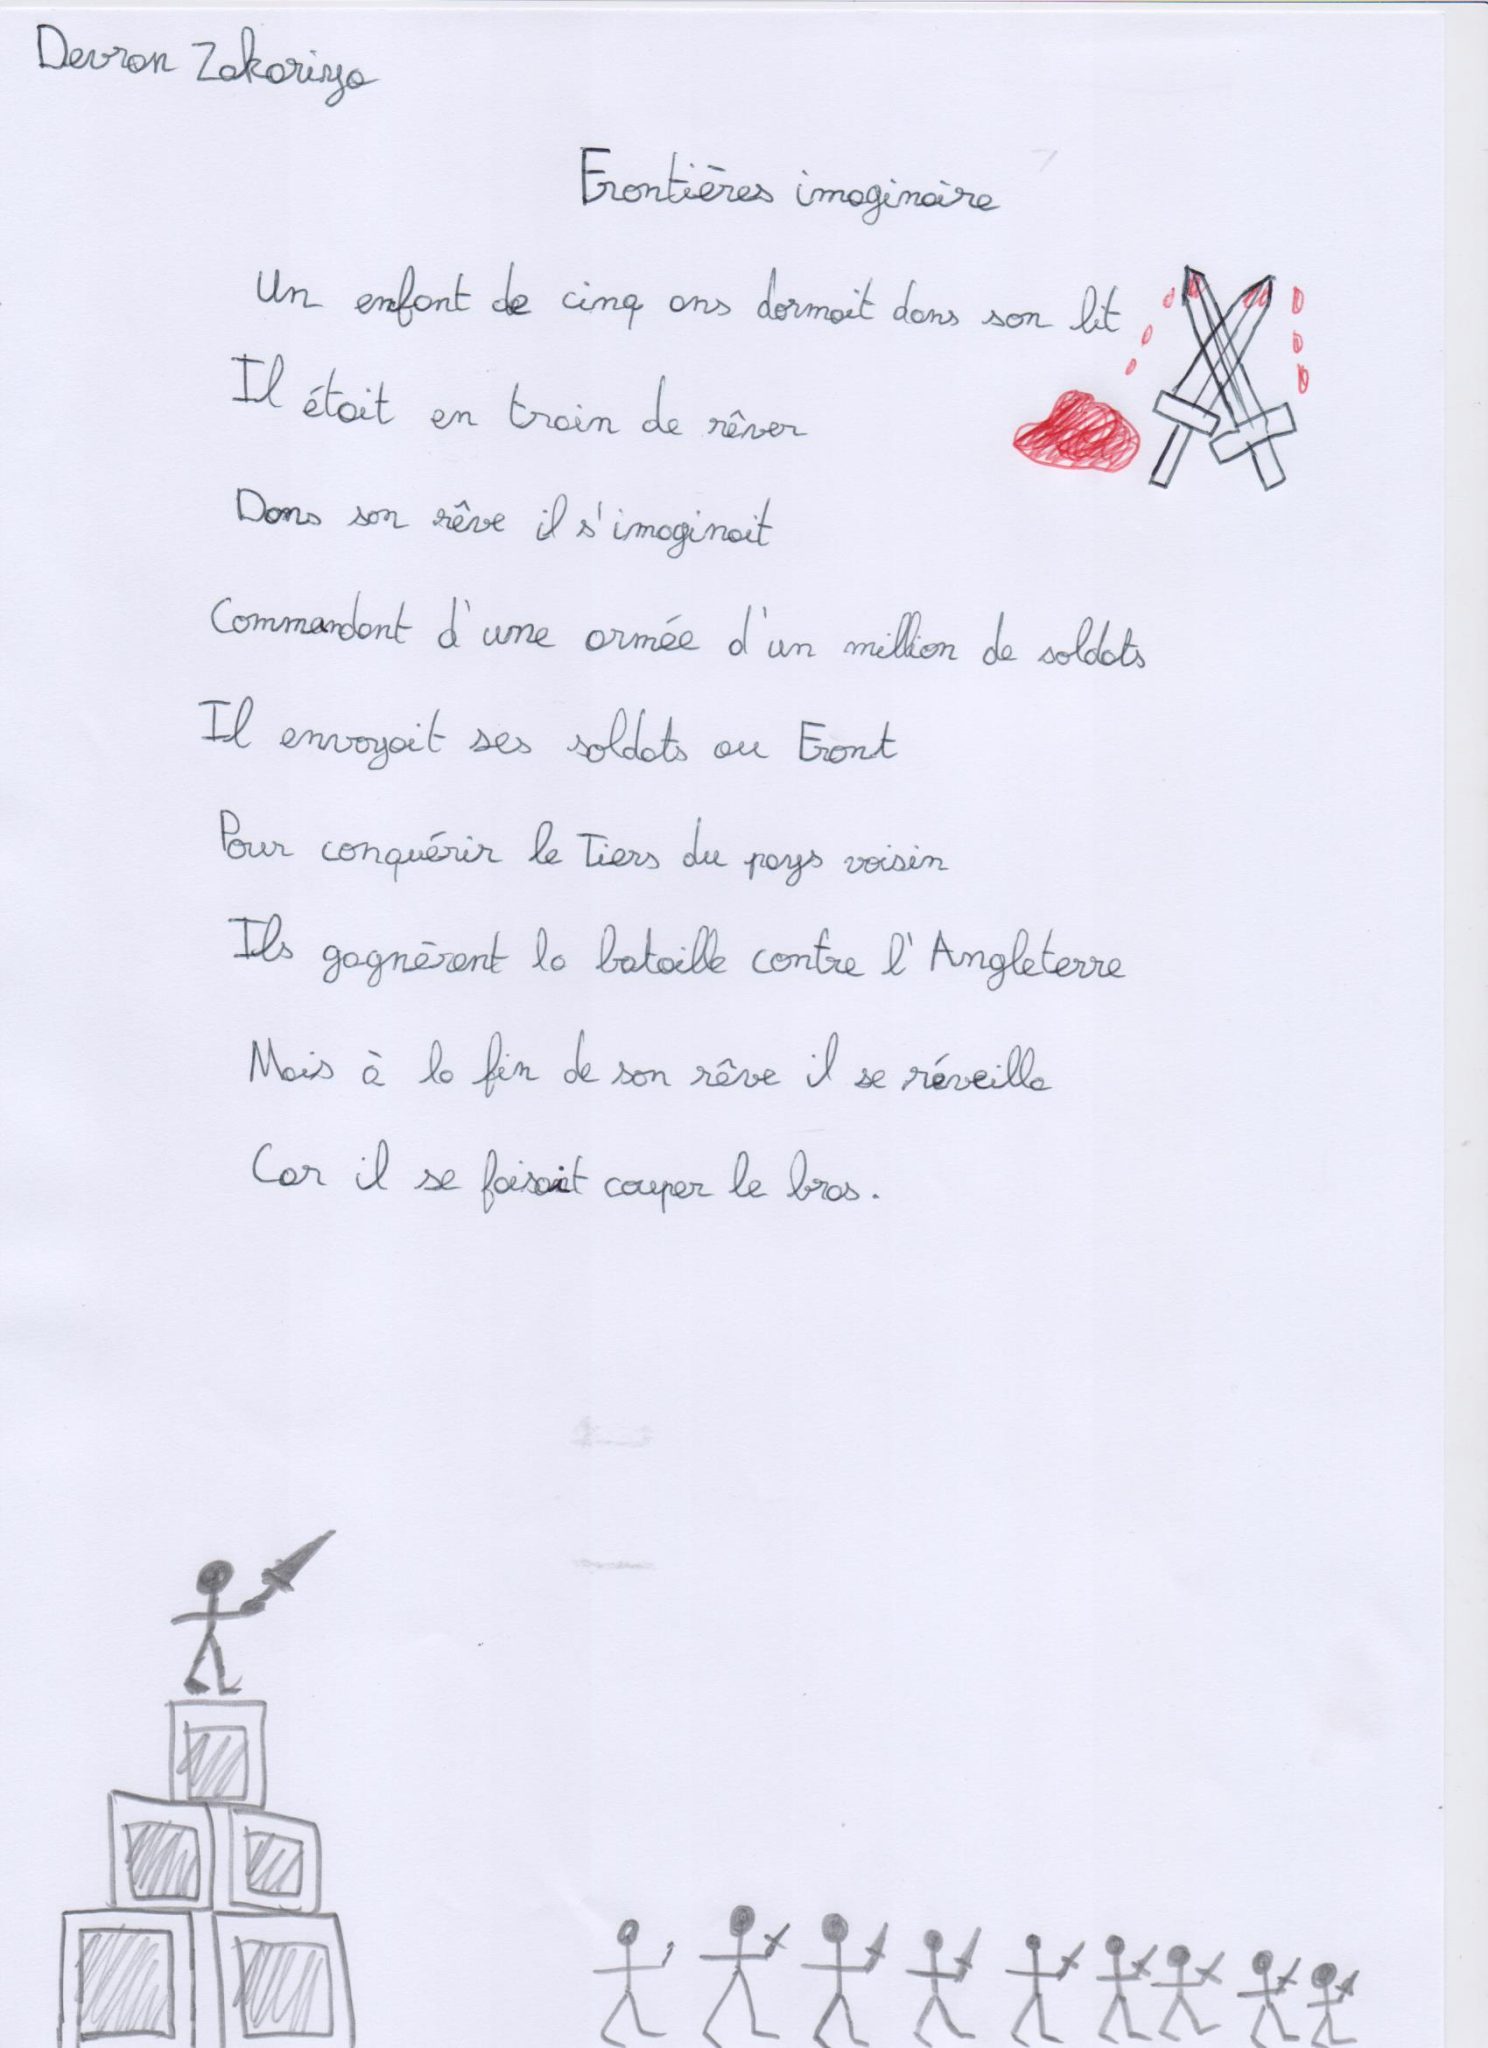 Devran Zakariya
Frontières imaginaire
Un enfant de cinq ans dormait dans son lit
Il était en train de rêver
Dans son rêve il s'imaginait
Commandant d'une armée d'un million de soldats
Il envoyait ses soldats au Front
Pour conquérir le Tiers du pays voisin
Ils gagnèrent la bataille contre l'Angleterre
Mais à la fin de son rêve il se réveilla
Car il se faisait couper le bras.